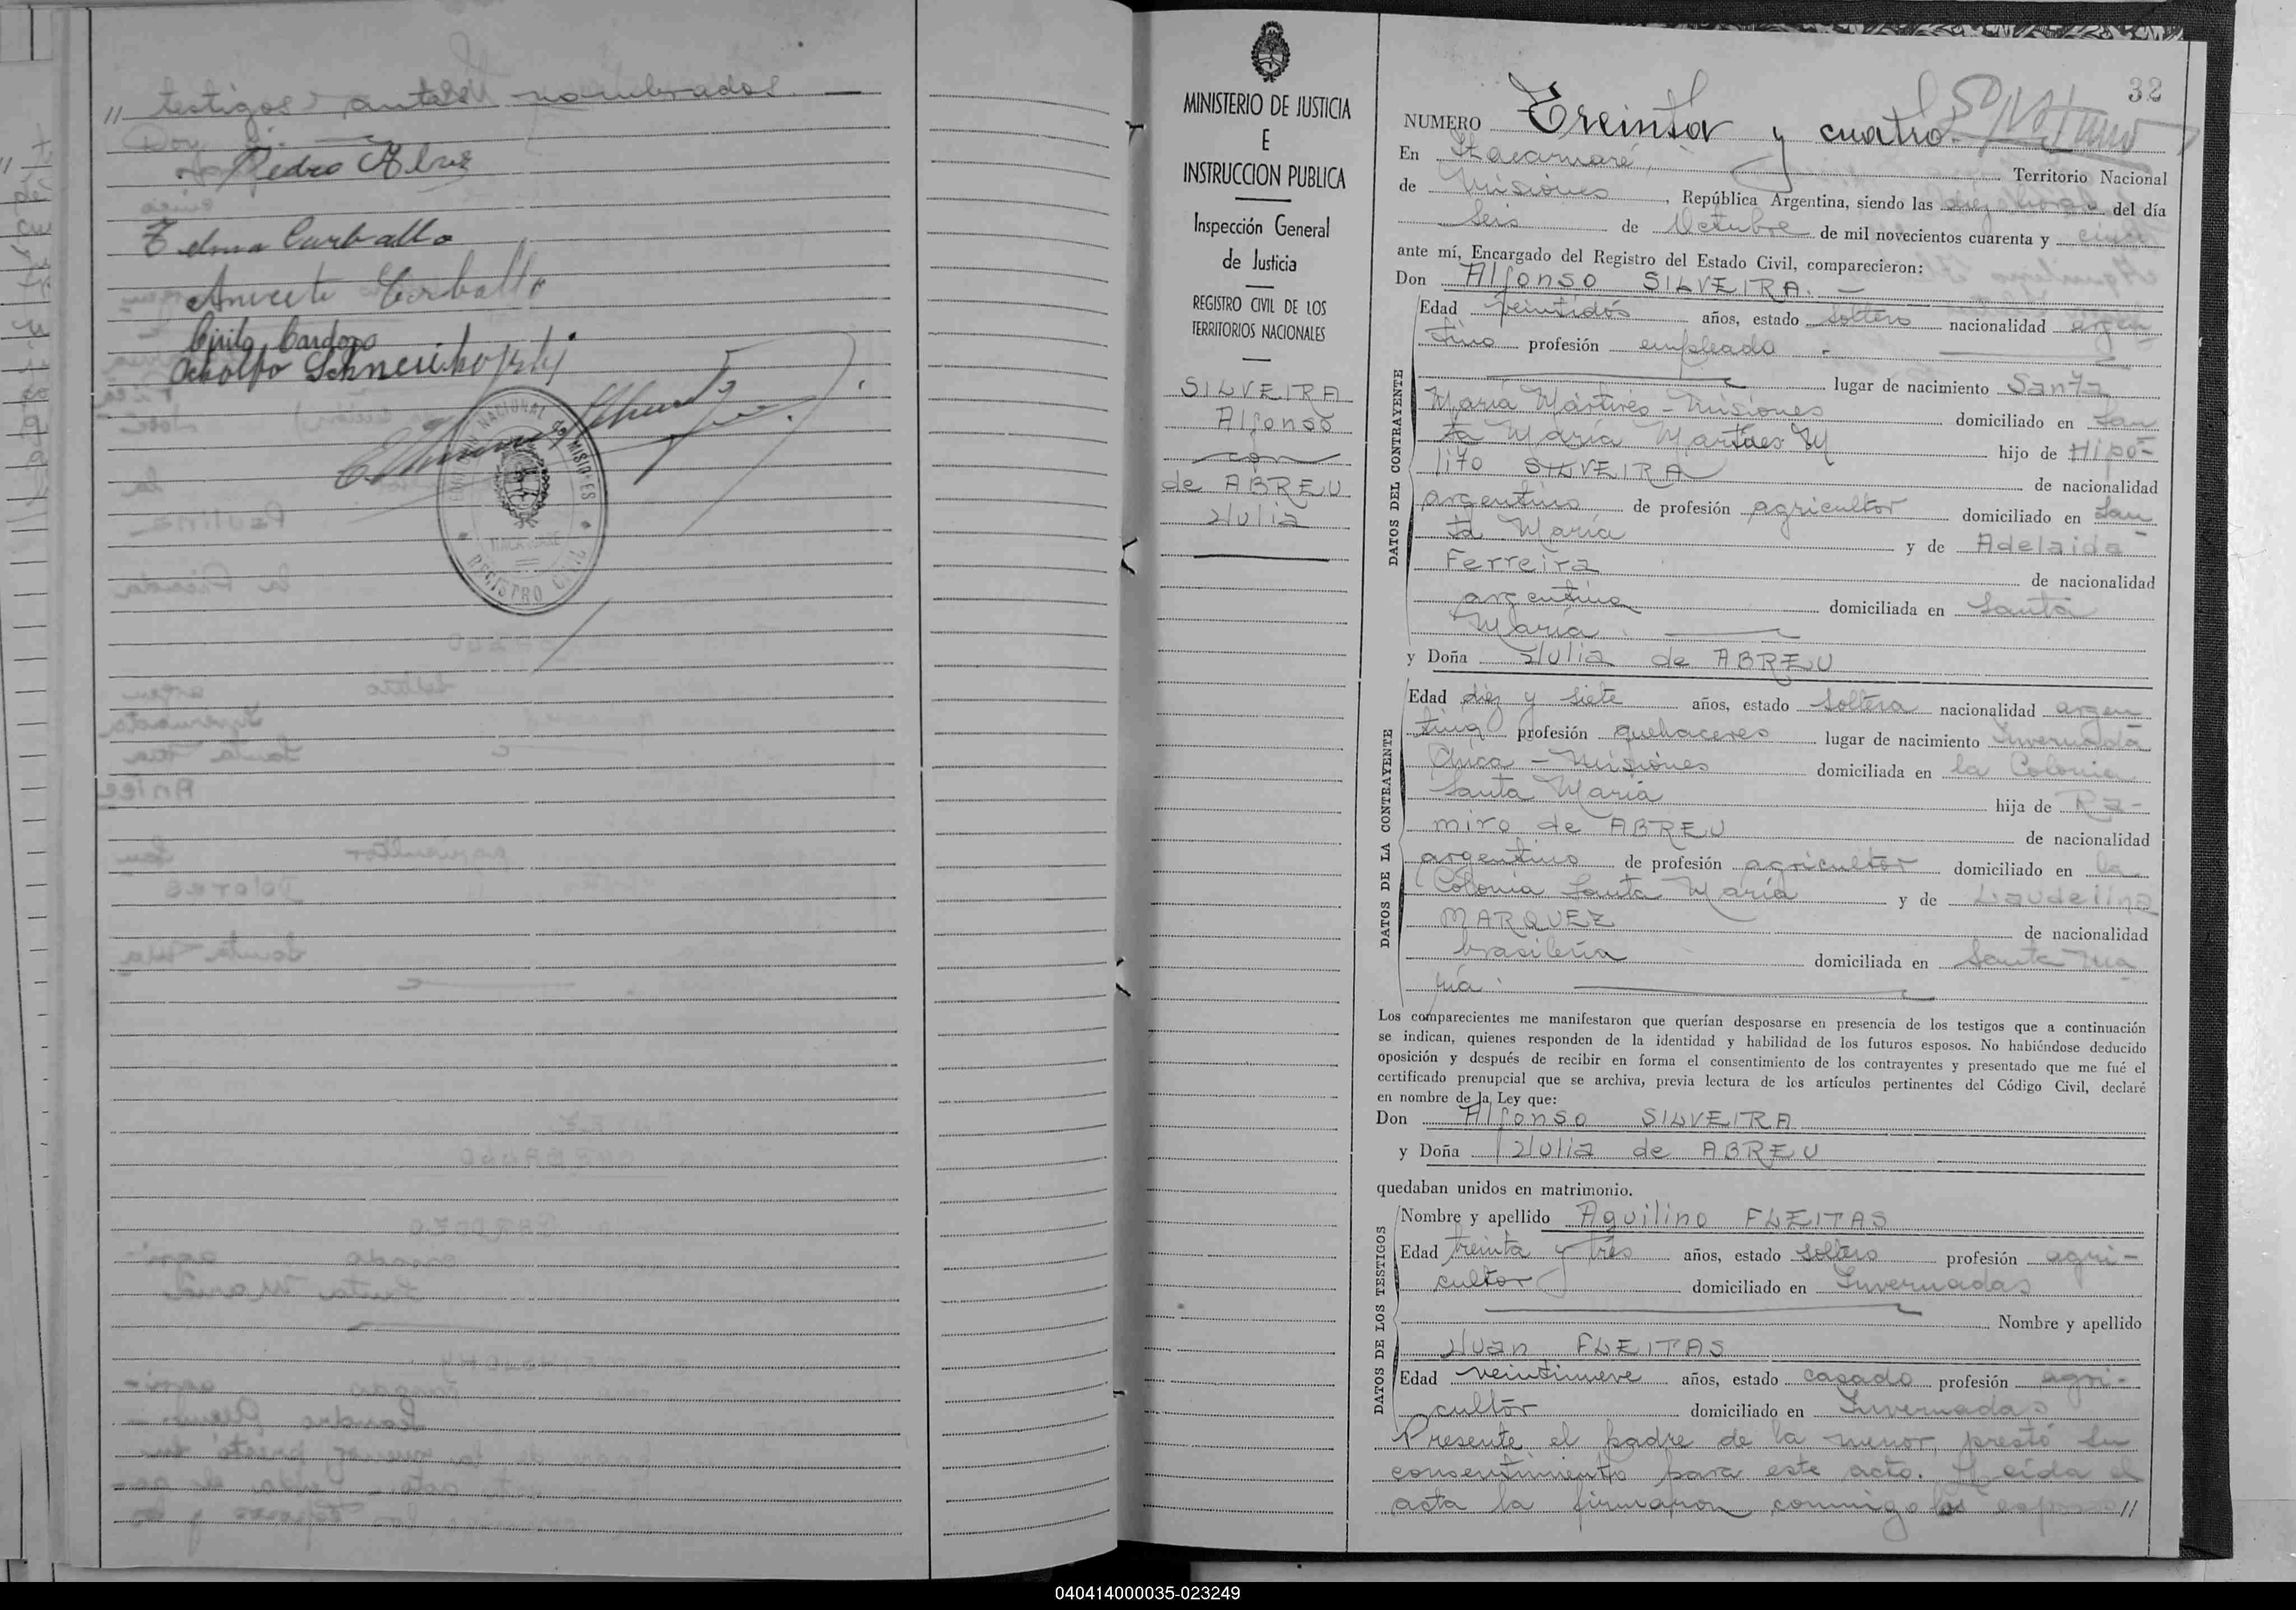 // testigos antes nombrados. —
Doy fe. —
Pedro Alvez
Telma Carballo
Aniceto Carballo
Cirilo Cardozo
Adolfo
REGISTRO CIVIL
MINISTERIO DE JUSTICIA
E
INSTRUCCION PUBLICA
Inspección General
de Justicia
REGISTRO CIVIL DE LOS
TERRITORIOS NACIONALES
SILVEIRA
Alfonso
con
de ABREU
Julia
32
NUMERO Treinta y cuatro.
En Itacaruaré, Territorio Nacional
de Misiones, República Argentina, siendo las diez horas del día
seis de Octubre de mil novecientos cuarenta y cinco
ante mí, Encargado del Registro del Estado Civil, comparecieron:
Don Alfonso SILVEIRA. —
DATOS DEL CONTRAYENTE
Edad veintidós años, estado soltero nacionalidad argen
tino profesión empleado -
lugar de nacimiento Santa
María Mártires - Misiones domiciliado en San
ta María Martires M hijo de Hipó-
lito SILVEIRA de nacionalidad
argentino de profesión agricultor domiciliado en San
ta María y de Adelaida
Ferreira de nacionalidad
argentina domiciliada en Santa
María.
y Doña Julia de ABREU
DATOS DE LA CONTRAYENTE
Edad diez y siete años, estado soltera nacionalidad argen
tina profesión quehaceres lugar de nacimiento Invernada
Chica - Misiones domiciliada en la Colonia
Santa María hija de Ra-
miro de ABREU de nacionalidad
argentino de profesión agricultor domiciliado en la
Colonia Santa María y de Laudelina
MARQUEZ de nacionalidad
brasileña domiciliada en Santa Ma
ría.
Los comparecientes me manifestaron que querían desposarse en presencia de los testigos que a continuación
se indican, quienes responden de la identidad y habilidad de los futuros esposos. No habiéndose deducido
oposición y después de recibir en forma el consentimiento de los contrayentes y presentado que me fué el
certificado prenupcial que se archiva, previa lectura de los artículos pertinentes del Código Civil, declaré
en nombre de la Ley que:
Don Alfonso SILVEIRA
y Doña Julia de ABREU
quedaban unidos en matrimonio.
DATOS DE LOS TESTIGOS
Nombre y apellido Aquilino FLEITAS
Edad treinta y tres años, estado soltero profesión agri-
cultor domiciliado en Invernadas
Nombre y apellido
Juan FLEITAS
Edad veintinueve años, estado casado profesión agri-
cultor domiciliado en Invernadas
Presente el padre de la menor, prestó su
consentimiento para este acto. Leída el
acta la firmaron conmigo los esposos //
040414000035-023249